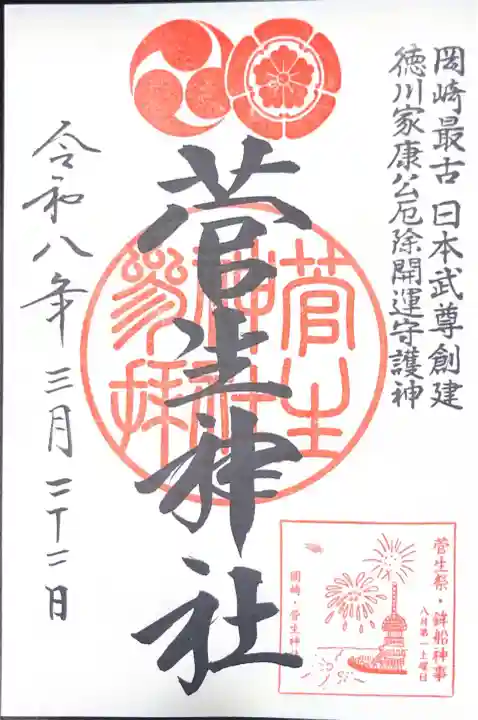 岡崎最古 日本武尊創建
徳川家康公厄除開運守護神
菅生神社
菅生
神社
参拝
令和八年 三月 二十二日
菅生祭・鉾船神事
八月第一土曜日
岡崎・菅生神社